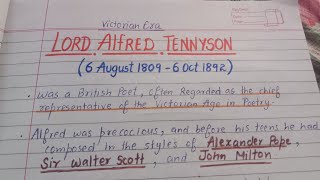 Victorian Era
LORD ALFRED TENNYSON
(6 August 1809 - 6 Oct 1892)
• Was a British Poet, often Regarded as the chief
representative of the Victorian Age in Poetry.
• Alfred was precocious, and before his teens he had
composed in the styles of Alexander Pope,
Sir Walter Scott, and John Milton